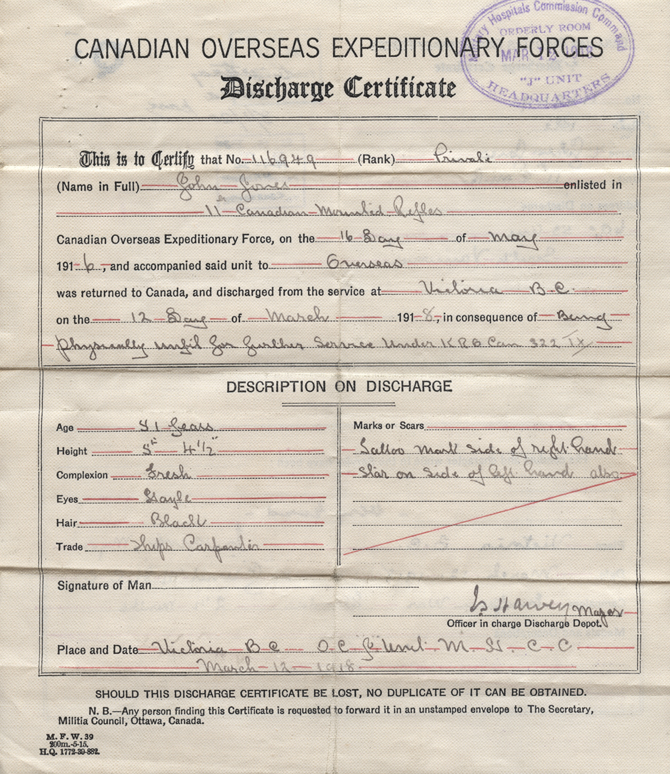 Military Hospitals Commission Command
ORDERLY ROOM
MAR
"J" UNIT
HEADQUARTERS
CANADIAN OVERSEAS EXPEDITIONARY FORCES
Discharge Certificate
This is to Certify that No. 116949 (Rank) Private
(Name in Full) John Jones enlisted in
11th Canadian Mounted Rifles
Canadian Overseas Expeditionary Force, on the 16 Day of May
191 6, and accompanied said unit to Overseas
was returned to Canada, and discharged from the service at Victoria B.C.
on the 12 Day of March 191 8, in consequence of Being
Physically unfit for further Service Under K R & O Can 322 IX
DESCRIPTION ON DISCHARGE
Age 51 Years
Height 5" 4½"
Complexion Fresh
Eyes Hayle
Hair Black
Trade Ships Carpenter
Marks or Scars
Tattoo mark side of right hand
Star on side of left hand also
Signature of Man
Harvey Major
Officer in charge Discharge Depot.
Place and Date Victoria B.C. O.C. J Unit M. H. C. C
March 12 1918
SHOULD THIS DISCHARGE CERTIFICATE BE LOST, NO DUPLICATE OF IT CAN BE OBTAINED.
N. B.—Any person finding this Certificate is requested to forward it in an unstamped envelope to The Secretary,
Militia Council, Ottawa, Canada.
M. F. W. 39
200m.-5-15.
H.Q. 1772-39-882.